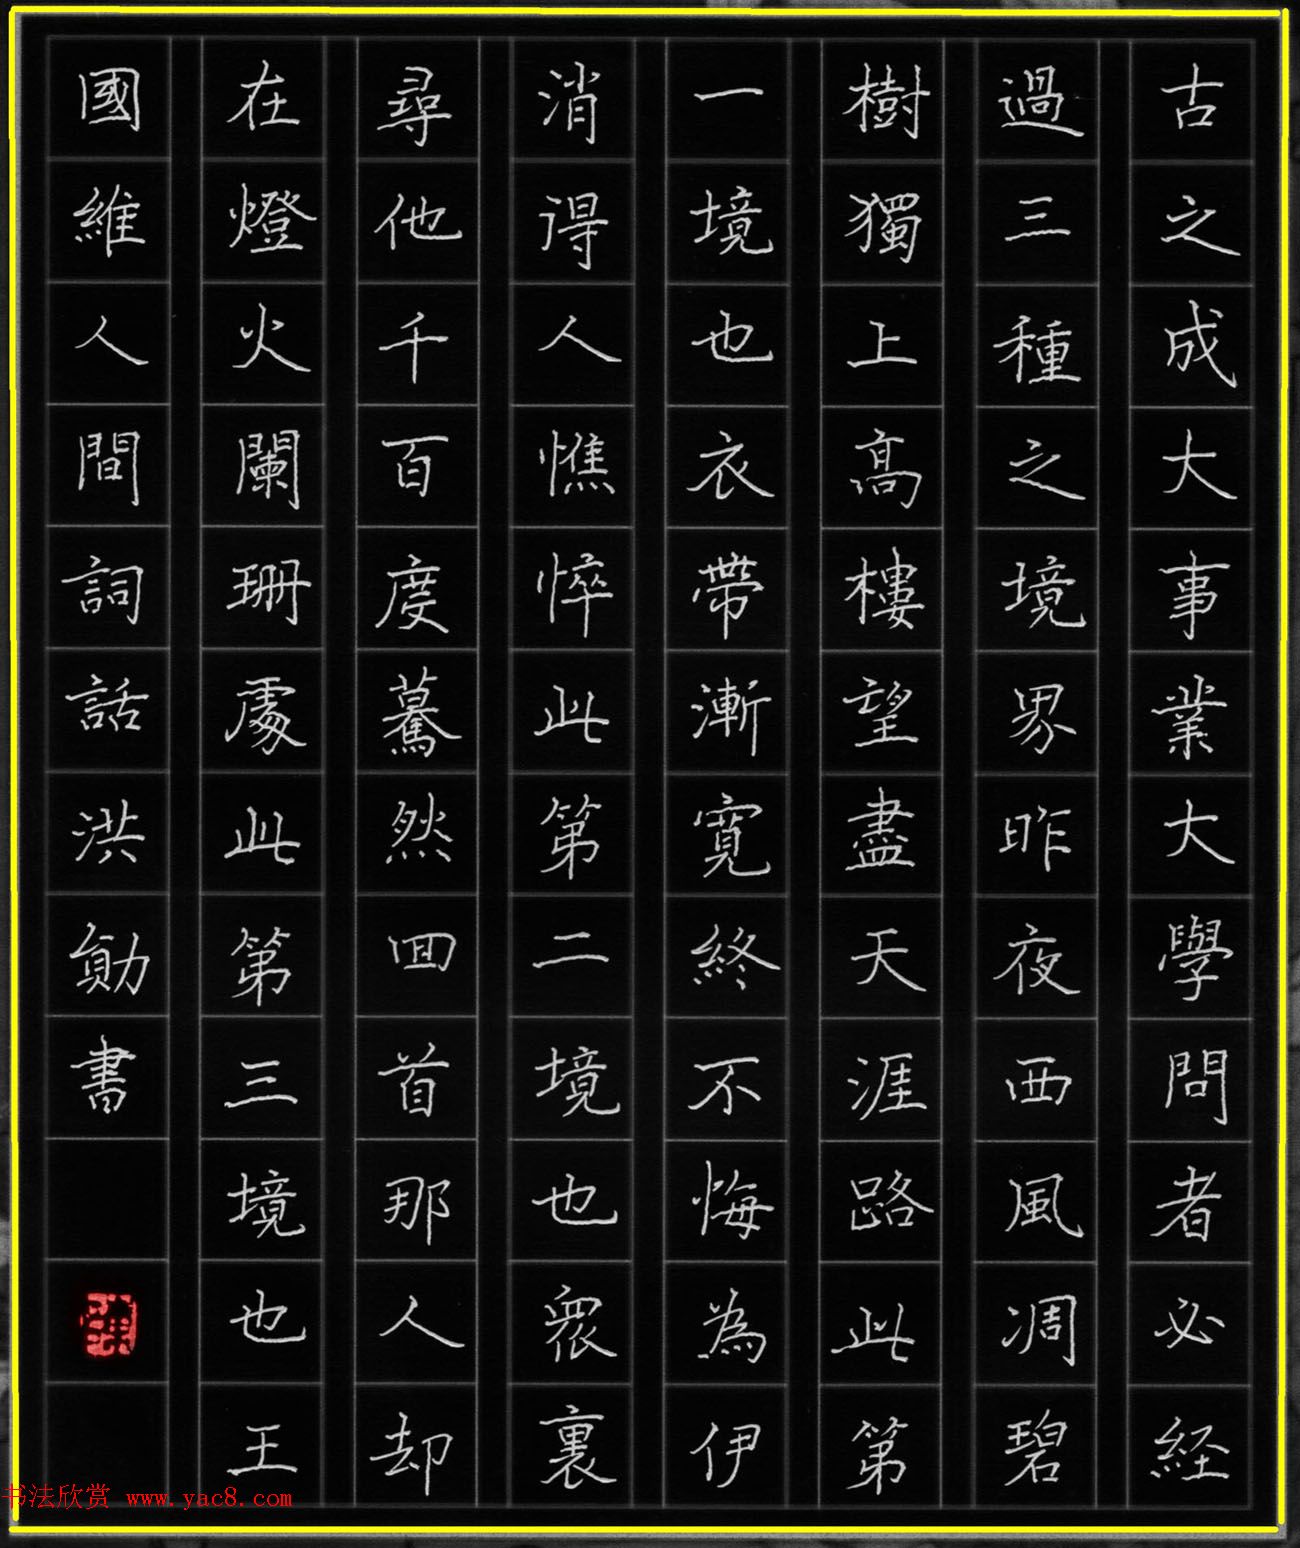 古之成大事業大學問者必経
過三種之境界昨夜西風凋碧
樹獨上高樓望盡天涯路此第
一境也衣帶漸寬終不悔為伊
消得人憔悴此第二境也眾裏
尋他千百度驀然回首那人却
在燈火闌珊處此第三境也王
國維人間詞話洪勛書
书法欣赏 www.yac8.com